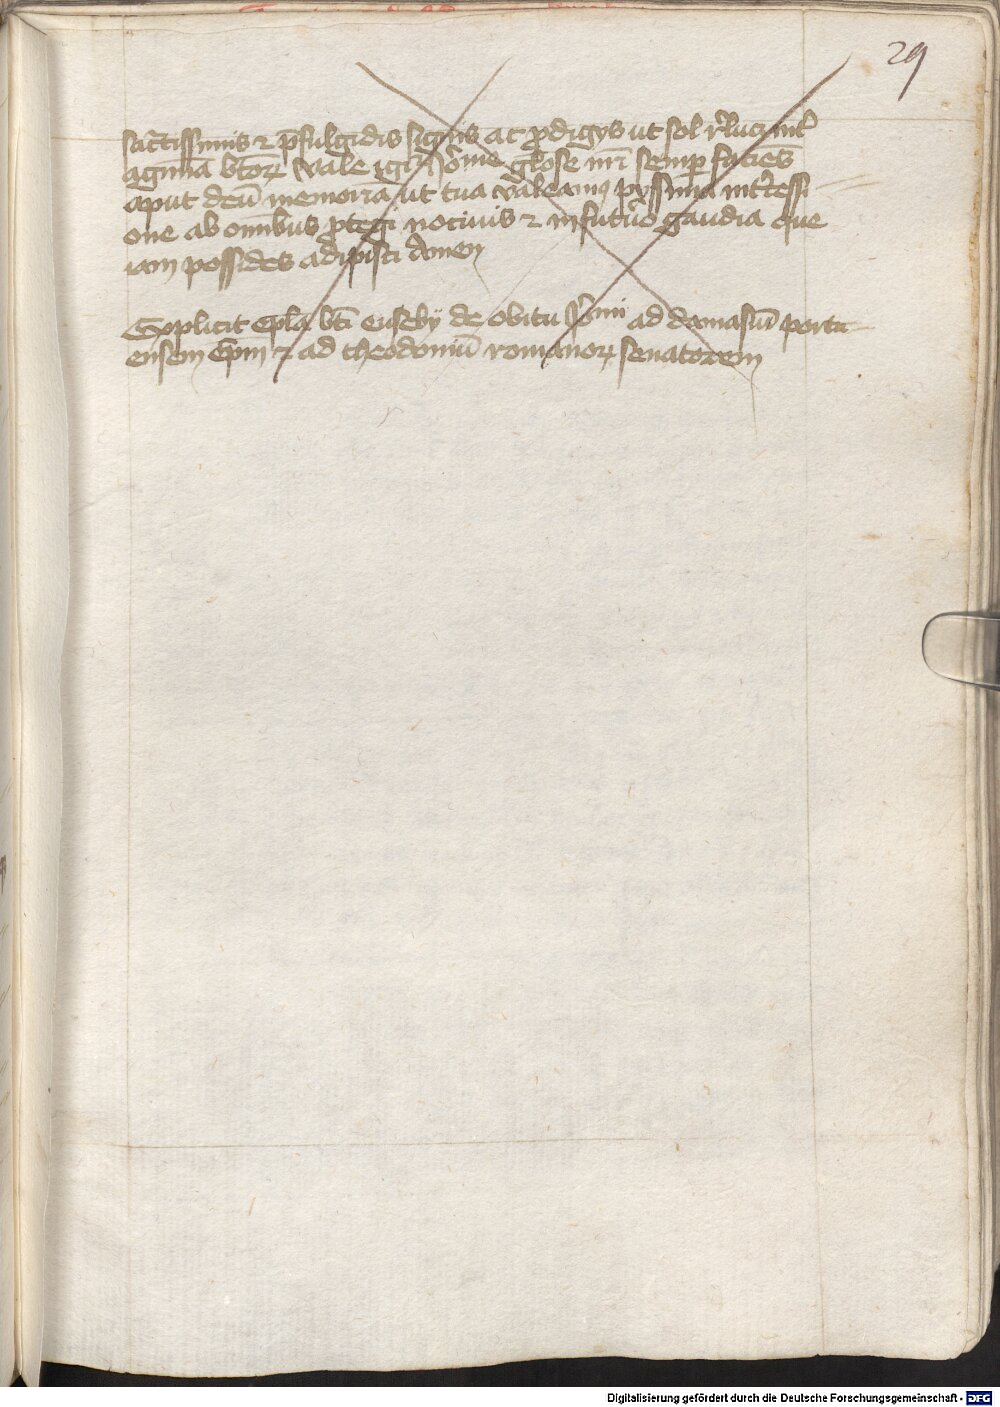 29
sāctissimis ⁊ p̄fulgidis signis ac ꝓdigijs ut sol reluci int̉
agmīa btōꝝ Vale igr̉ Jo͛ime glōse nr̄i semp̄ facies
aput deū memoriā ut tua valeamꝰ pyssima int̉cessi
one ab omībus ptegi nociuis ⁊ in futuro gaudia que
iam possides adipisci Amen
Explicit Epla bti eusebij de obitu Jo͛imi ad damasiū portu
ensem Epm̄ ⁊ ad theodoniū romanoꝝ senatorem
Digitalisierung gefördert durch die Deutsche Forschungsgemeinschaft - DFG